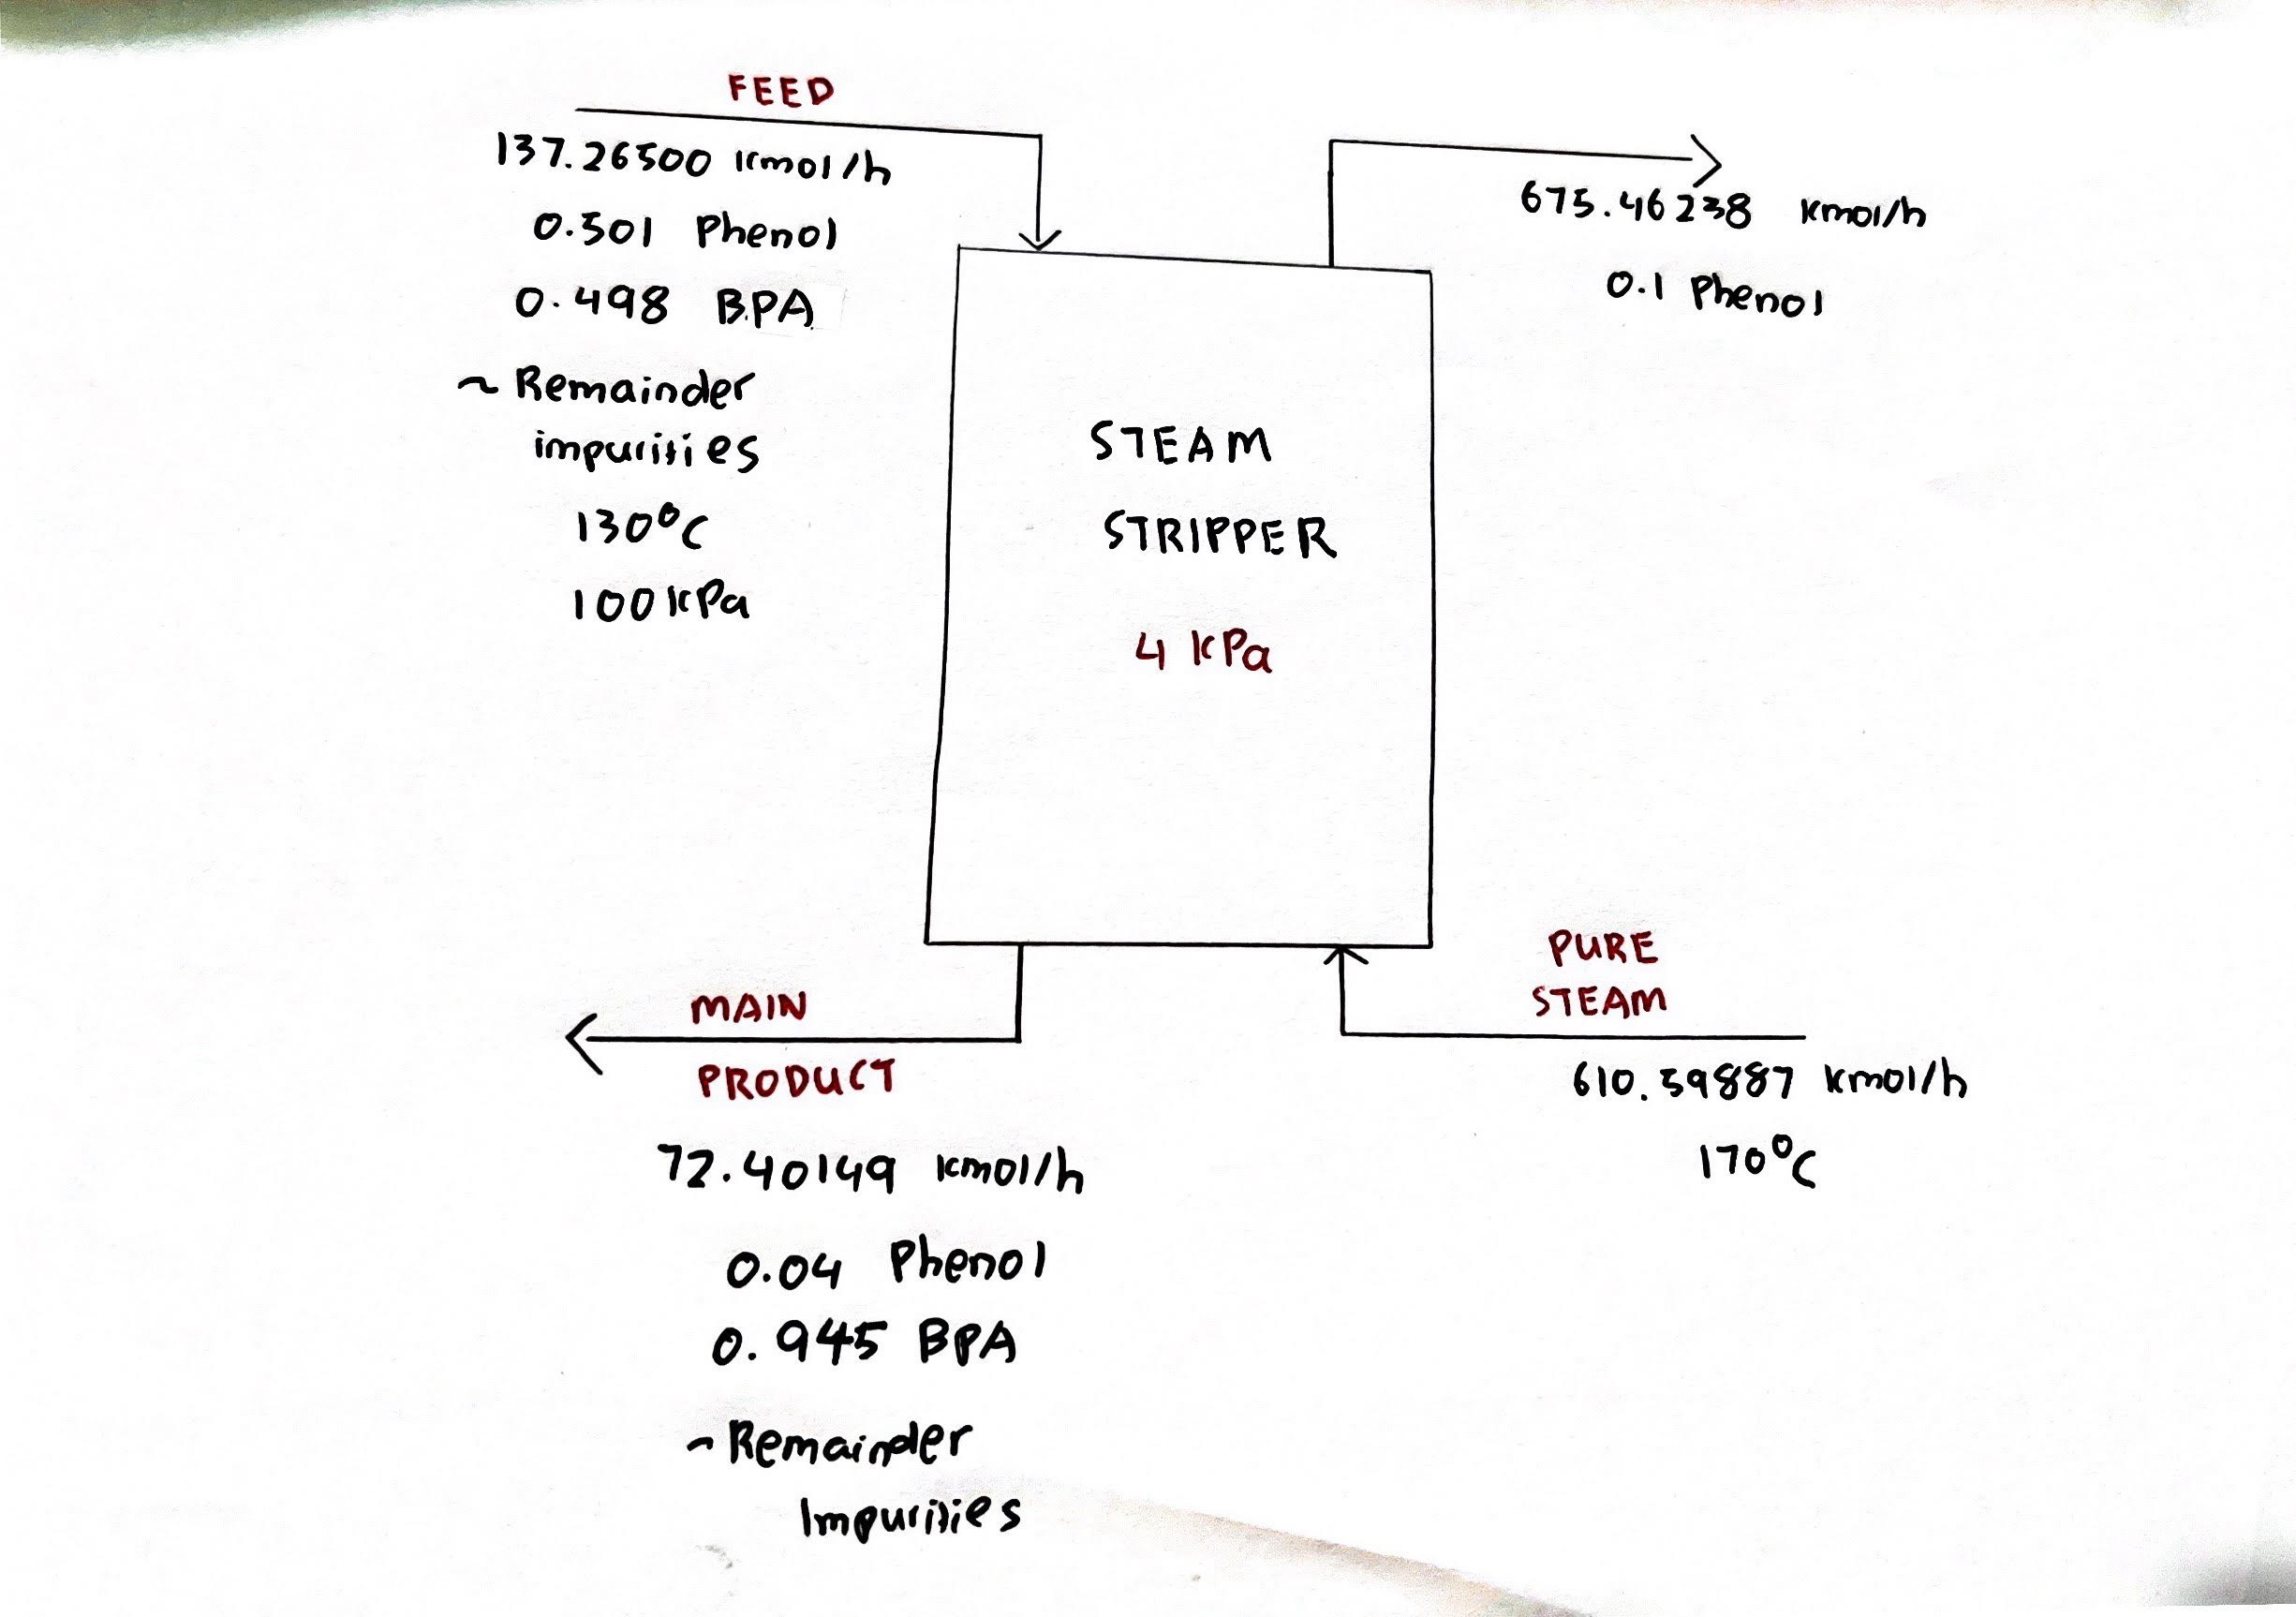 FEED
137.26500 kmol/h
0.501 Phenol
0.498 BPA
~ Remainder
impurities
130°C
100 kPa
675.46238 kmol/h
0.1 Phenol
STEAM
STRIPPER
4 kPa
MAIN
PRODUCT
72.40149 kmol/h
0.04 Phenol
0.945 BPA
~ Remainder
Impurities
PURE
STEAM
610.59887 kmol/h
170°C